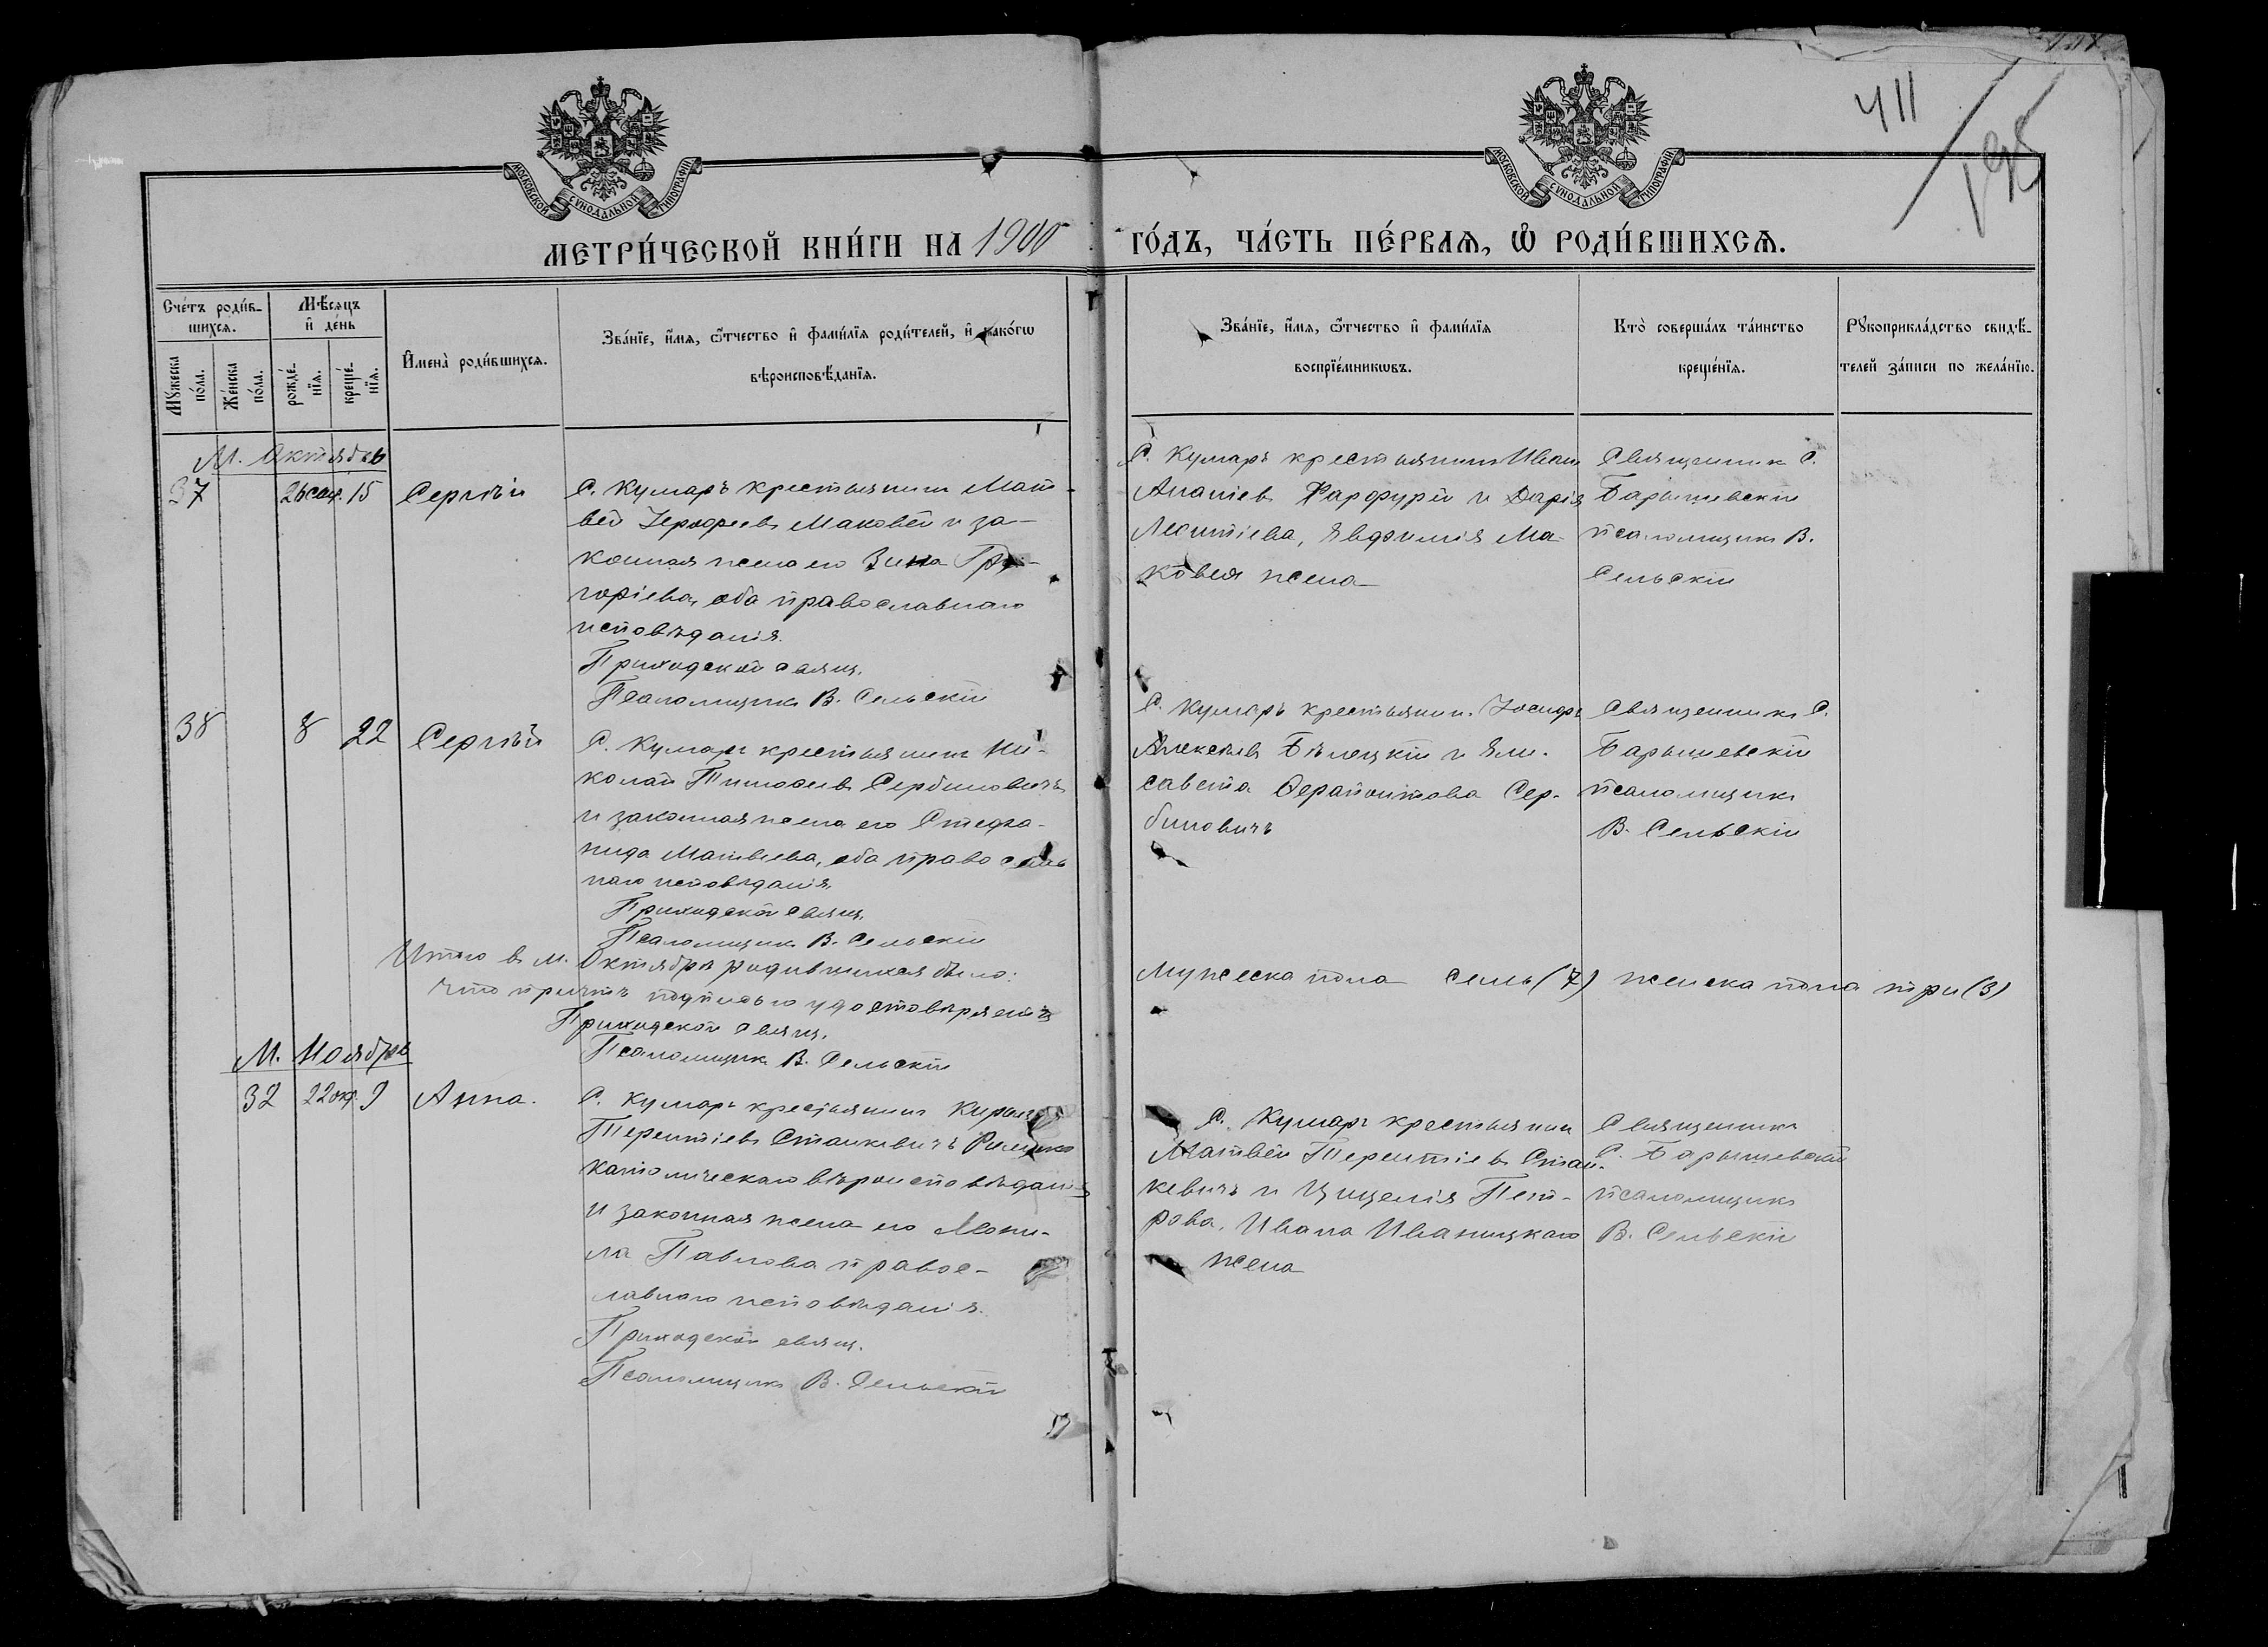 411
195
МОСКОВСКОЙ СѴНОДАЛЬНОЙ ТИПОГРАФІИ
МОСКОВСКОЙ СѴНОДАЛЬНОЙ ТИПОГРАФІИ
МЕТРИ́ЧЕСКОЙ КНИ́ГИ НА 1900 ГО́ДЪ, ЧА́СТЬ ПЕ́РВАѦ, Ѽ РОДИ́ВШИХСѦ.
Сче́тъ роди́в-
шихсѧ.
Мѣ́сѧцъ
и҆ де́нь
Мꙋ́жеска
по́ла.
Же́нска
по́ла.
рожде́-
нїѧ.
креще́-
нїѧ.
И҆мена̀ роди́вшихсѧ.
Зва́нїе, и҆́мѧ, ѻ҆́тчество и҆ фами́лїѧ роди́телей, и҆ како́гѡ
вѣроисповѣ́данїѧ.
Зва́нїе, и҆́мѧ, ѻ҆́тчество и҆ фами́лїѧ
воспрїе́мникѡвъ.
Кто̀ соверша́лъ та́инство
креще́нїѧ.
Рꙋкоприкла́дство свидѣ́-
телей за́писи по жела́нїю.
М. Октябрь
37 26 сен. 15 Сергѣй
С. Кумаръ крестьянинъ Мат-
вей Іерофеевъ Маковей и за-
конная жена его Зина Гри-
горіева, оба православнаго
исповѣданія.
Приходской свящ.
Псаломщикъ В. Сельскій
С. Кумаръ крестьянинъ Иванъ
Ананіевъ Фарфурій и Дарія
Леонтіева, Евфимія Ма-
ковея жена
Священникъ С.
Барышевскій
псаломщикъ В.
Сельскій
38 8 22 Сергѣй
С. Кумаръ крестьянинъ Ни-
колай Тимофеевъ Сербиновичъ
и законная жена его Стефа-
нида Матвѣева, оба православ
наго исповѣданія.
Приходской свящ.
Псаломщикъ В. Сельскій
С. Кумаръ крестьянинъ Іосифъ
Алексѣевъ Бѣлецкій и Ели-
савета Ферапонтова Сер-
биновичъ
Священникъ С.
Барышевскій
псаломщикъ
В. Сельскій
Итого въ м. Октябрѣ родившихся было: мужеска пола семь (7) женска пола три (3)
что причтъ подписью удостовѣряетъ
Приходской свящ.
Псаломщикъ В. Сельскій
М. Ноябрь
32 22 окт. 9 Анна.
С. Кумаръ крестьянинъ
Терентіевъ Станкевичъ Римско
католическаго вѣроисповѣданія
и законная жена его Мони-
ка Павлова правос-
лавнаго исповѣданія.
Приходской свящ.
Псаломщикъ В. Сельскій
С. Кумаръ крестьянин
Матвѣй Терентіевъ Стан-
кевичъ и Цицелія Пет-
рова, Ивана Иваницкаго
жена
Священникъ
С. Барышевскій
псаломщикъ
В. Сельскій